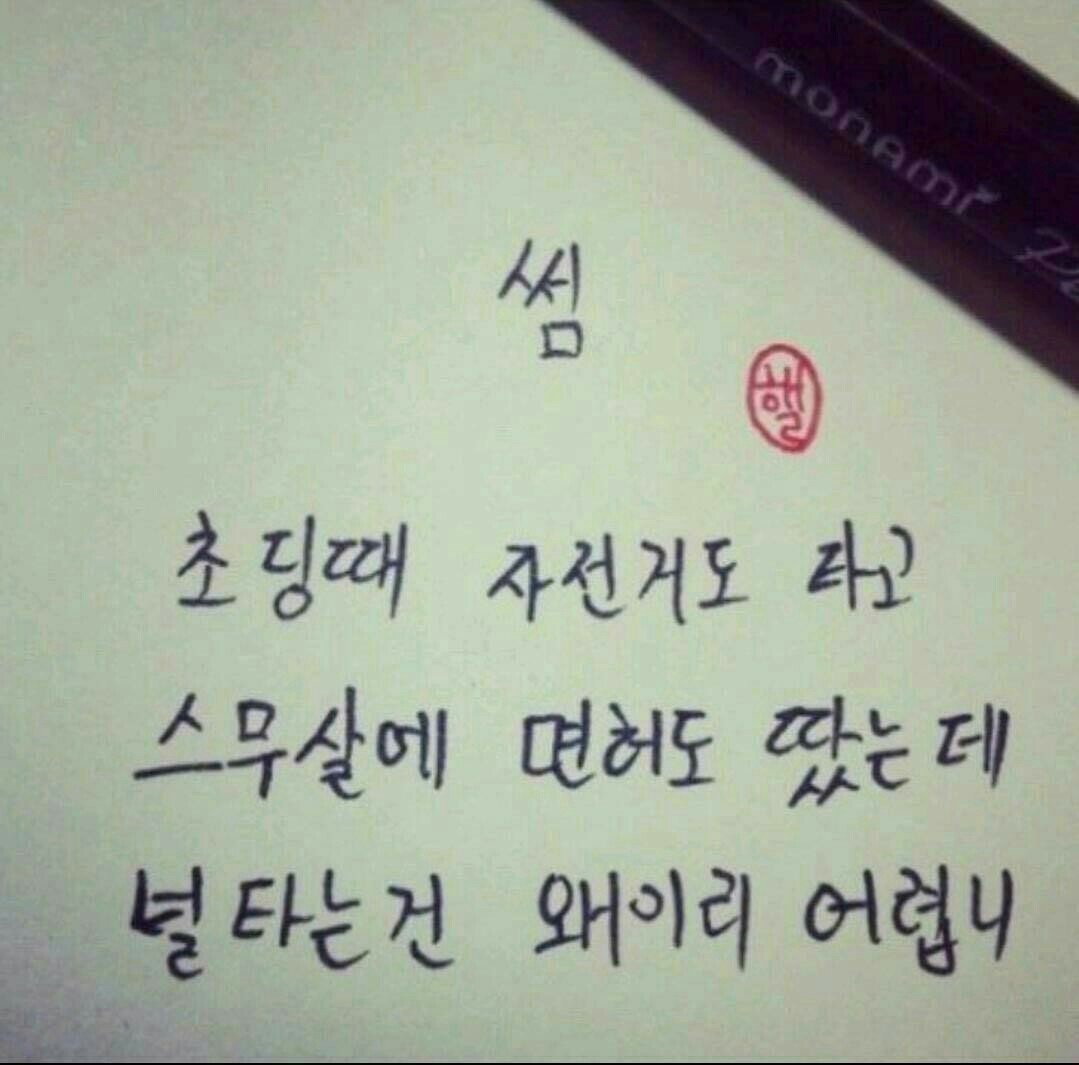 monami
썸
핼
초딩때 자전거도 타고
스무살에 면허도 땄는데
널 타는건 왜이리 어렵니